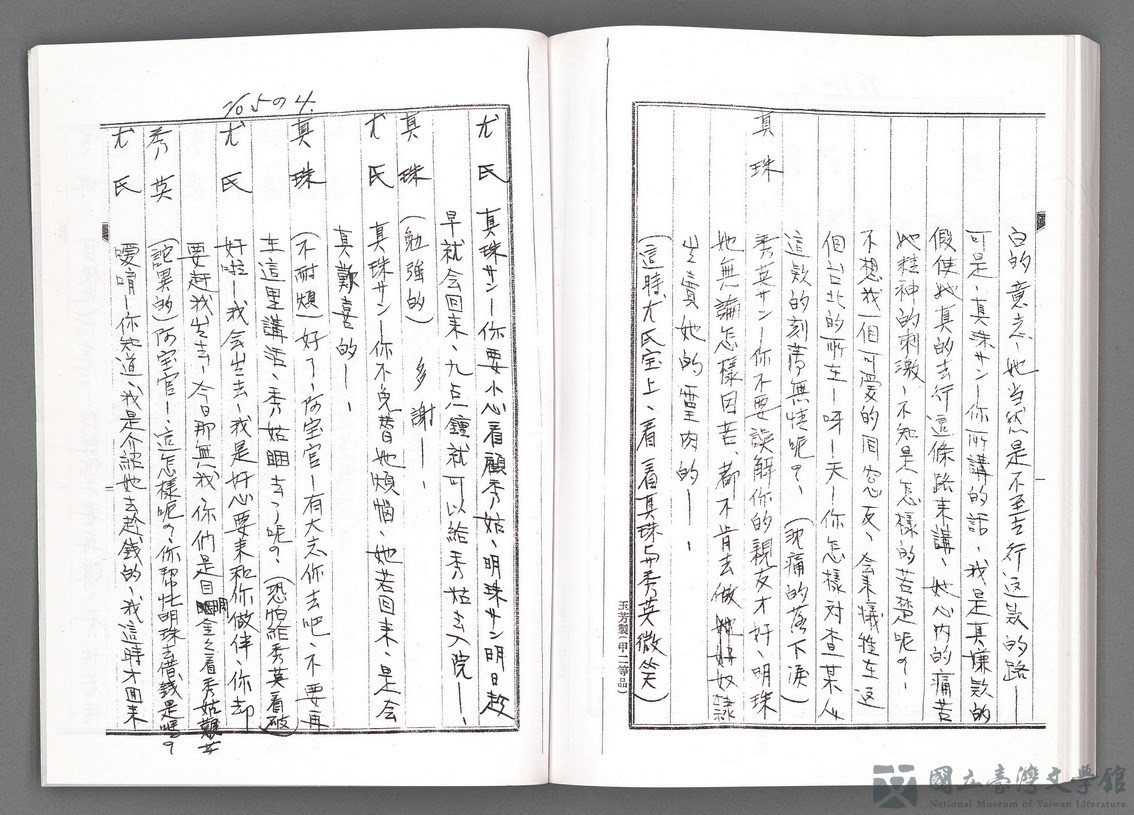 白的意志、她当然是不至去行这款的路—
可是、真珠サン—你所講的話、我是真嫌款的
假使她真的去行這條路来講、她心内的痛苦
她精神的刺激、不知是怎樣的苦楚呢？
不想我一個可愛的同窓友、会来犠牲在這
個台北的所在—呀—天—你怎樣对查某人
這款的刻薄無情呢？ （沈痛的落下淚）
真珠 秀英サン—你不要誤解你的親友才好、明珠
她無論怎樣困苦、都不肯去做奴隷
出賣她的霊肉的—
（這時尤氏室上、看着真珠与秀英微笑）
玉芳製（甲二等品）
765の4.
尤氏 真珠サン—你要小心看顧秀姑、明珠サン明日趁
早就会回来、九点鐘就可以給秀姑去入院—
真珠 （勉強的） 多謝—
尤氏 真珠サン—你不免替她煩惱、她若回来、是会
真歡喜的—
真珠 （不耐煩）好了、阿宝官—有大志你去吧、不要再
在這里講活、秀姑睏去了呢？（恐怕給秀英看破）
尤氏 好啦—我会出去、我是好心要来和你做伴、你却
要赶我出去、今日那無我、你们是目睭金金看秀姑艱苦
秀英 （詑異的）阿宝官—這怎樣呢？你幇忙明珠去借錢是嗎？
尤氏 噯唷—你知道、我是介紹她去趁錢的、我這時才回来
國立臺灣文學館
National Museum of Taiwan Literature